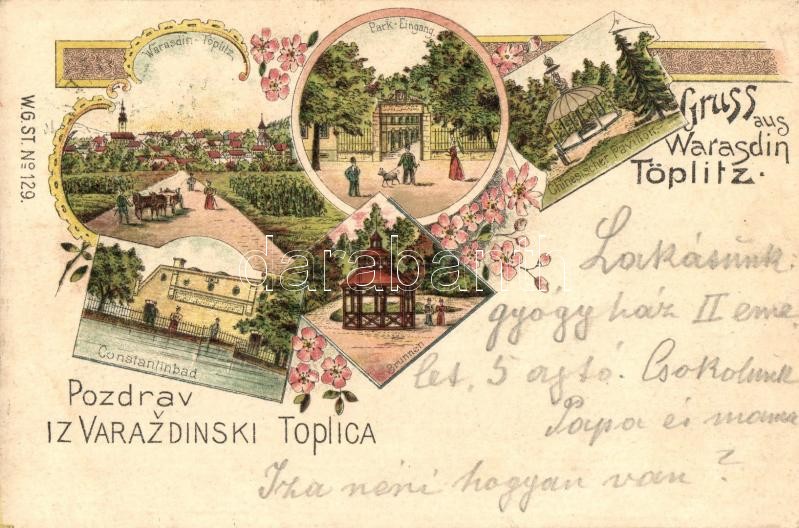 Warasdin-Töplitz.
Park-Eingang
Chinesischer Pavillon.
Gruss aus
Warasdin
Töplitz.
W.G.ST. No 129.
Constantinbad
Brunnen
Pozdrav
IZ VARAŽDINSKI TOPLICA
Lakásunk
gyógyház II eme
let, 5 ajtó. Csokolunk
Papa és mama
Iza néni hogyan van?
darabanth